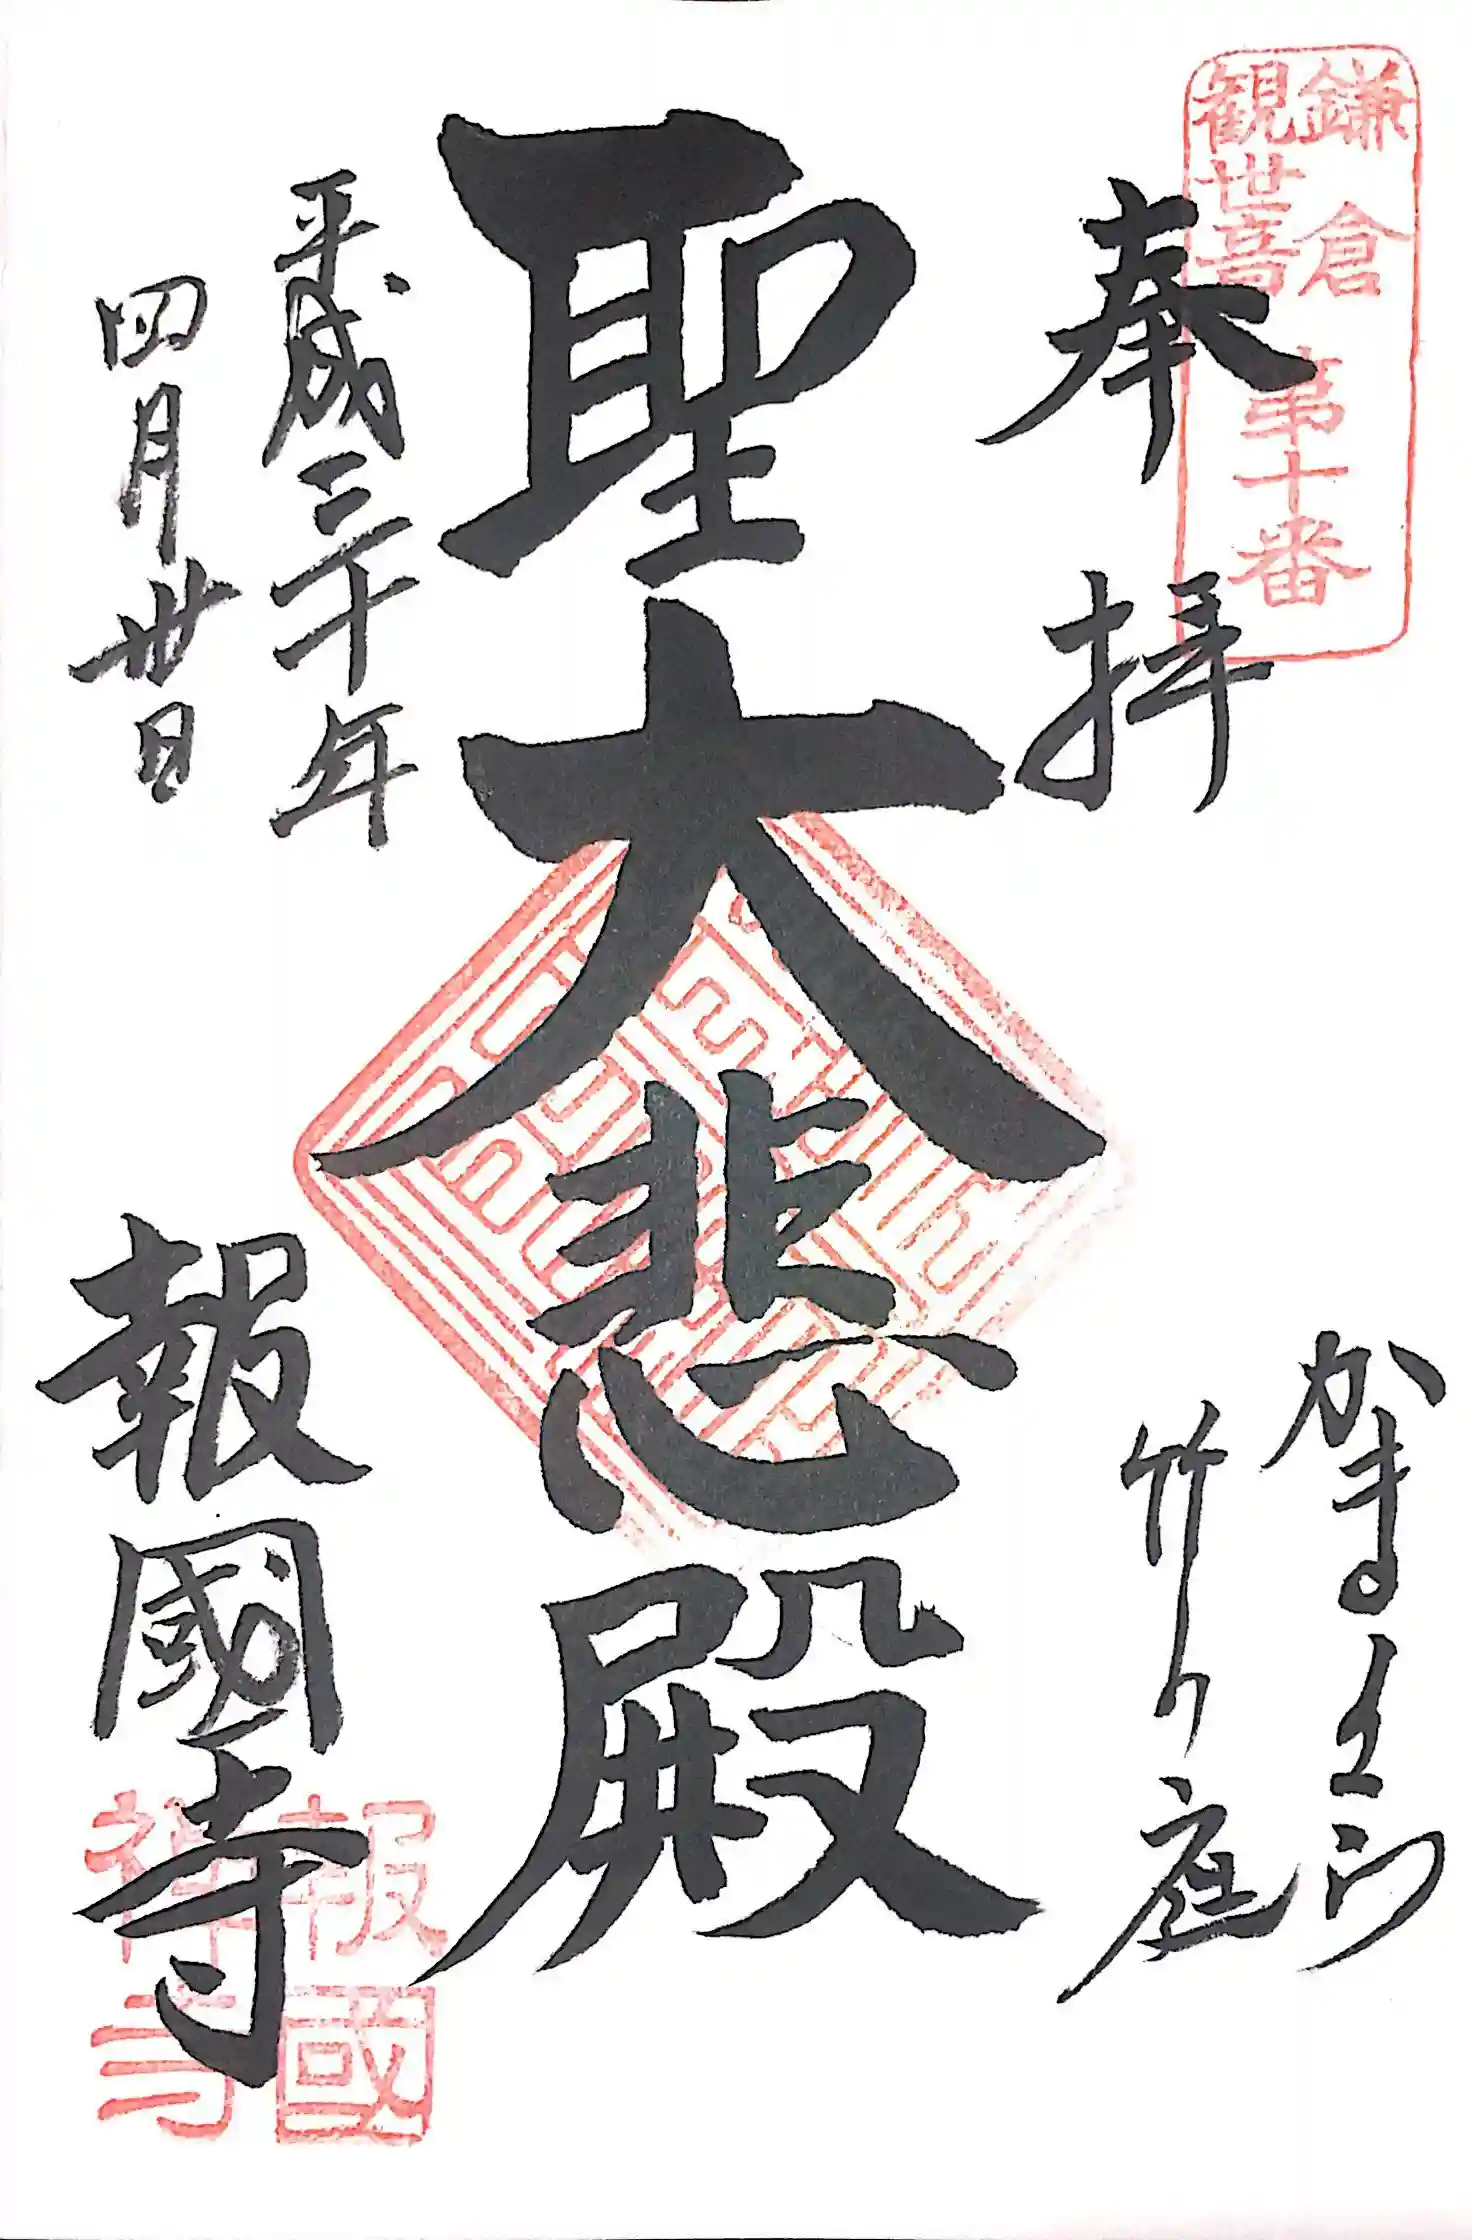 鎌倉
観世音
第十番
奉拝
かまくらの
竹の庭
聖大悲殿
平成三十年
四月丗日
報國寺
報國
禅寺